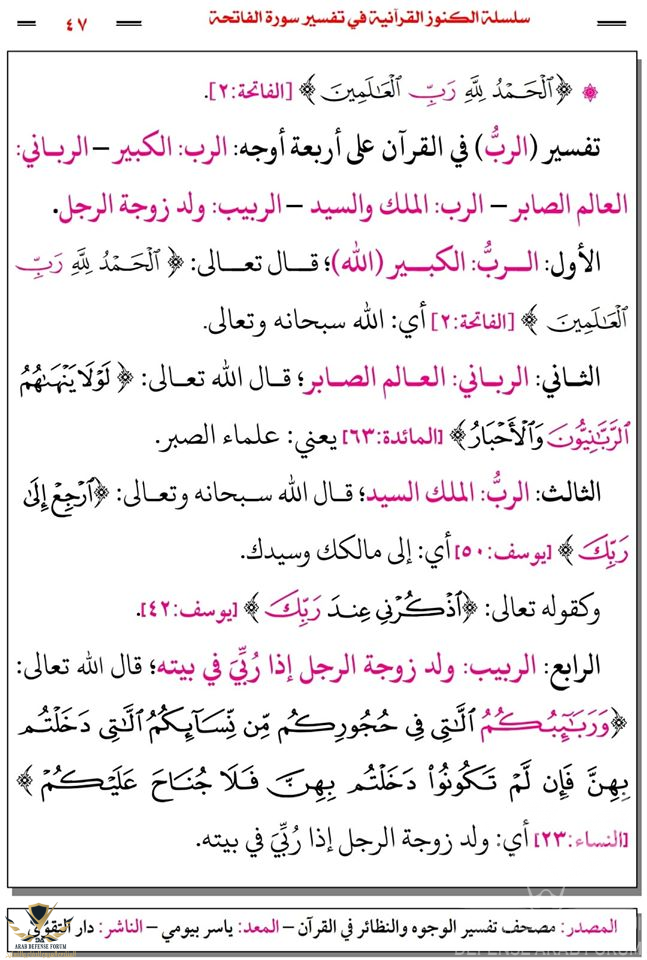 سلسلة الكنوز القرآنية في تفسير سورة الفاتحة
٤٧
﴿ٱلْحَمْدُ لِلَّهِ رَبِّ ٱلْعَٰلَمِينَ﴾ [الفاتحة:٢].
تفسير (الربُّ) في القرآن على أربعة أوجه: الرب: الكبير – الرباني:
العالم الصابر – الرب: الملك والسيد – الربيب: ولد زوجة الرجل.
الأول: الربُّ: الكبير (الله)؛ قال تعالى: ﴿ٱلْحَمْدُ لِلَّهِ رَبِّ
ٱلْعَٰلَمِينَ﴾ [الفاتحة:٢] أي: الله سبحانه وتعالى.
الثاني: الرباني: العالم الصابر؛ قال الله تعالى: ﴿لَوْلَا يَنْهَىٰهُمُ
ٱلرَّبَّٰنِيُّونَ وَٱلْأَحْبَارُ﴾ [المائدة:٦٣] يعني: علماء الصبر.
الثالث: الربُّ: الملك السيد؛ قال الله سبحانه وتعالى: ﴿ٱرْجِعْ إِلَىٰ
رَبِّكَ﴾ [يوسف:٥٠] أي: إلى مالكك وسيدك.
وكقوله تعالى: ﴿ٱذْكُرْنِى عِندَ رَبِّكَ﴾ [يوسف:٤٢].
الرابع: الربيب: ولد زوجة الرجل إذا رُبِّيَ في بيته؛ قال الله تعالى:
﴿وَرَبَٰٓئِبُكُمُ ٱلَّٰتِى فِى حُجُورِكُم مِّن نِّسَآئِكُمُ ٱلَّٰتِى دَخَلْتُم
بِهِنَّ فَإِن لَّمْ تَكُونُوا۟ دَخَلْتُم بِهِنَّ فَلَا جُنَاحَ عَلَيْكُمْ﴾
[النساء:٢٣] أي: ولد زوجة الرجل إذا رُبِّيَ في بيته.
المصدر: مصحف تفسير الوجوه والنظائر في القرآن – المعد: ياسر بيومي – الناشر: دار التقوى
ARAB DEFENSE FORUM
DEFENSE ARAB FORUM